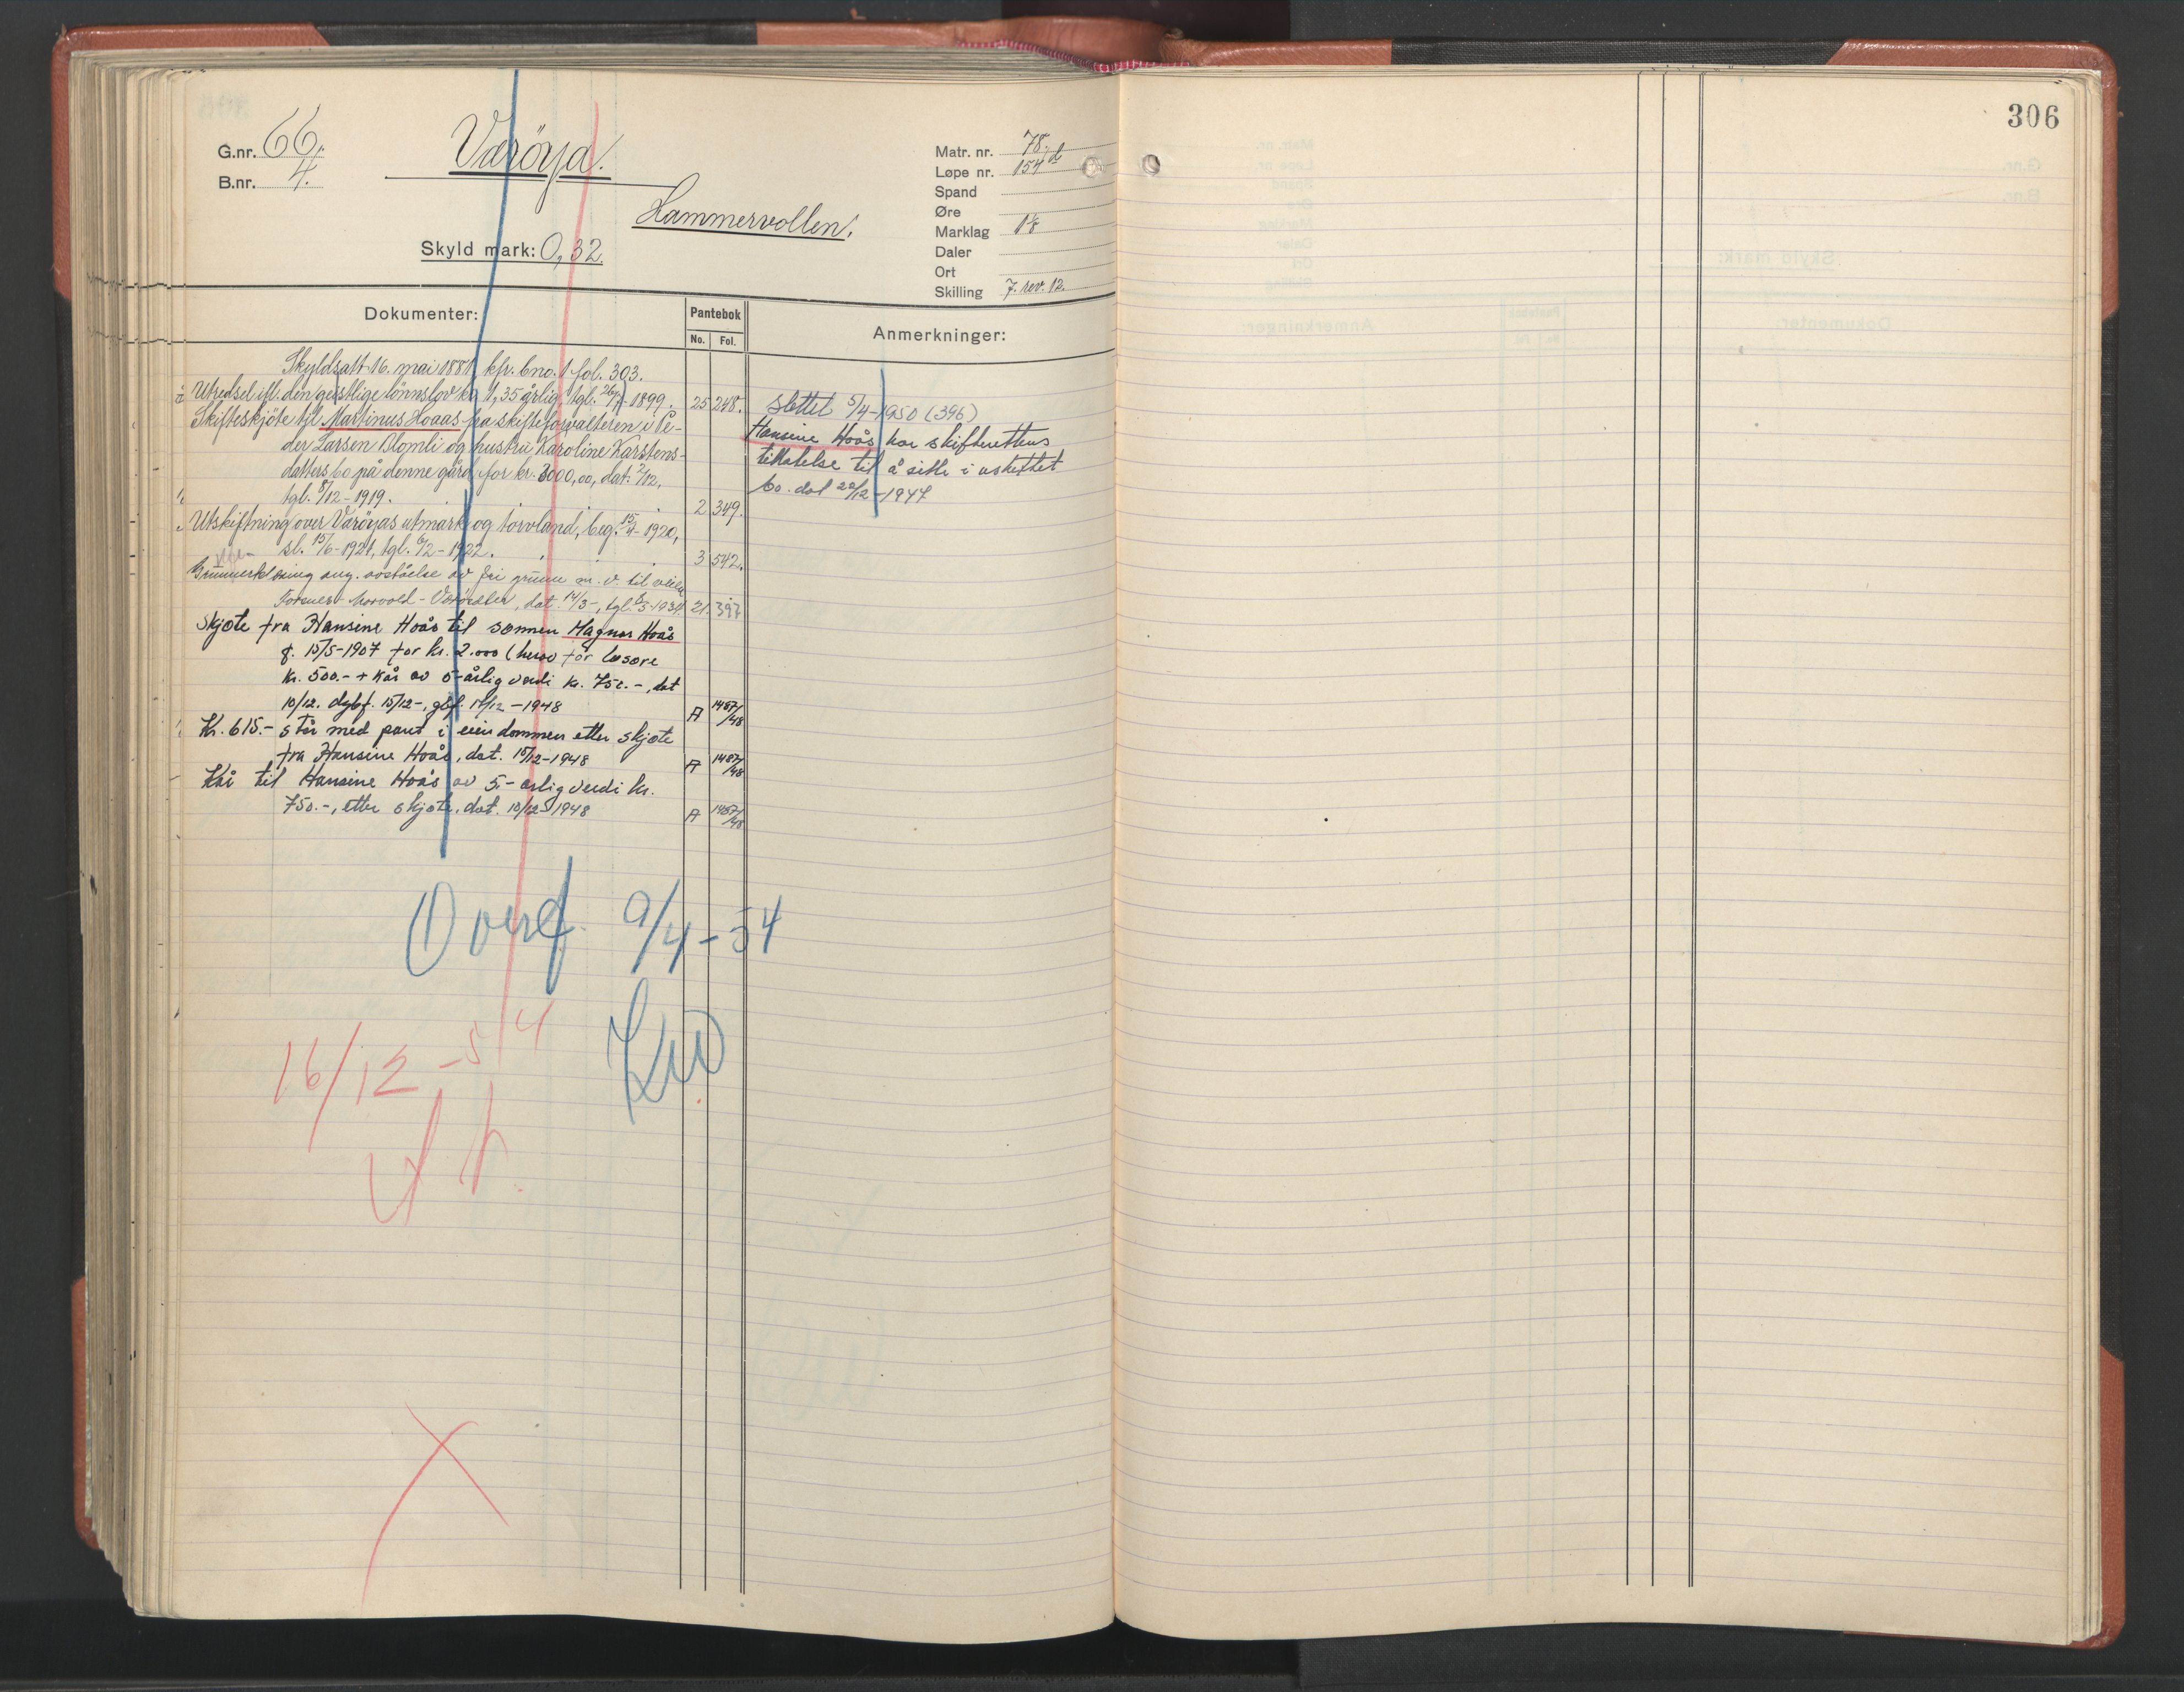 306
G.nr. 66.
B.nr. 4.
Værøya.
Hammervollen.
Skyld mark: 0,32.
Matr. nr. 78.
Løpe nr. 154 d
Spand
Øre
Marklag 18
Daler
Ort
Skilling 7. rev. 12.
Dokumenter:
Pantebok
No. Fol.
Anmerkninger:
Skyldsatt 16. mai 1881, kfr. bno. 1 fol. 303.
Utredsel ifl. den geistlige lönnslov kr. 1,35 årlig, tgl. 26/7-1899. 25 248.
Skifteskjöte til Martinus Hoaas fra skifteforvalteren i Pe-
der Larsen Blomli og hustru Karoline Karstens-
datters bo på denne gård for kr. 3000,00, dat. 2/12,
tgl. 8/12-1919. 2 349.
Utskiftning over Værøyas utmark og torvland, beg. 15/4-1920,
sl. 15/6-1921, tgl. 6/2-1922. 3 542.
Grunnerklæring ang. avståelse av fri grunn m. v. til veien
dat. 14/3-, tgl. 1934. 21. 397
Skjøte fra Hansine Hoås til sønnen Magnar Hoås
f. 15/5-1907 for kr. 2.000 (herav for løsøre
kr. 500.- + kår av 5-årlig verdi kr. 750.-, dat
10/12. dgbf. 15/12-, gbf. 17/12-1948 A 1487/48
Kr. 615.- står med pant i eiendommen etter skjøte
fra Hansine Hoås, dat. 10/12-1948 A 1487/48
Kår til Hansine Hoås av 5-årlig verdi kr.
750.-, etter skjøte, dat. 10/12-1948 A 1487/48
slettet 5/4-1950 (396)
Hansine Hoås har skifterettens
tillatelse til å sitte i uskiftet
bo. dat 20/12-1947
Overf. 9/4-54
16/12-54